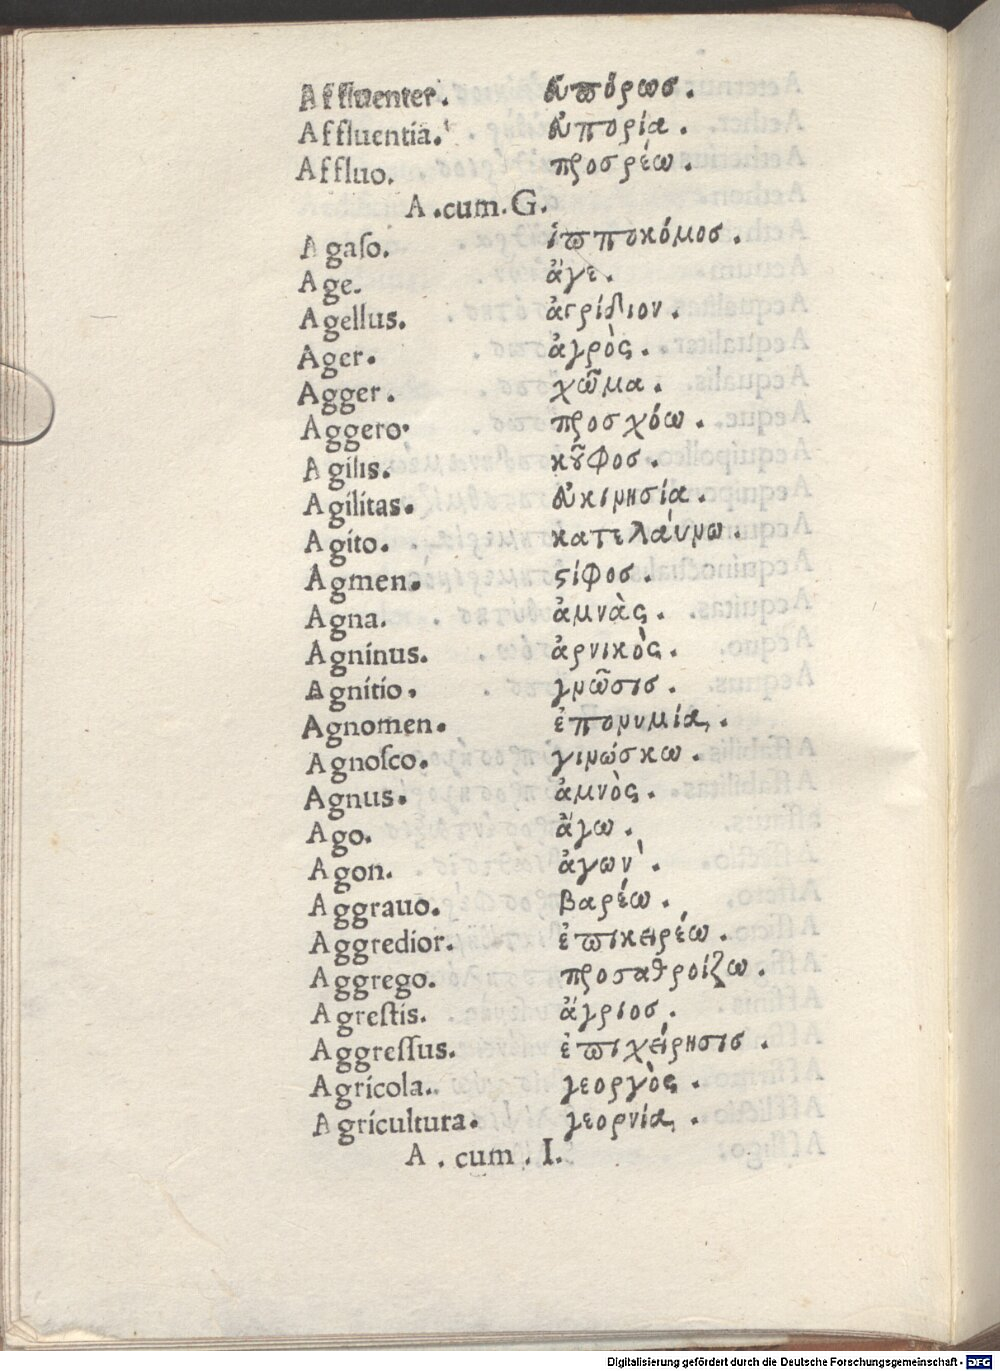 Affluenter. εὐπόρως.
Affluentia. εὐπορία.
Affluo. προσρέω.
A.cum.G.
Agaſo. ἱπποκόμοσ.
Age. ἄγε.
Agellus. ἀγρίδιον.
Ager. ἀγρὸς.
Agger. χῶμα.
Aggero. προσχόω.
Agilis. κοῦφοσ.
Agilitas. εὐκινησία.
Agito. κατελάυνω.
Agmen. στίφοσ.
Agna. ἀμνὰς.
Agninus. ἀρνικὸς.
Agnitio. γνῶσισ.
Agnomen. ἐπονυμία.
Agnoſco. γινώσκω.
Agnus. ἀμνὸς.
Ago. ἄγω.
Agon. ἀγων.
Aggrauo. βαρέω.
Aggredior. ἐπικειρέω.
Aggrego. προσαθροίζω.
Agreſtis. ἄγριοσ.
Aggreſſus. ἐπιχείρησισ.
Agricola. γεοργὸς.
Agricultura. γεορνία.
A. cum. I.
Digitalisierung gefördert durch die Deutsche Forschungsgemeinschaft - DFG